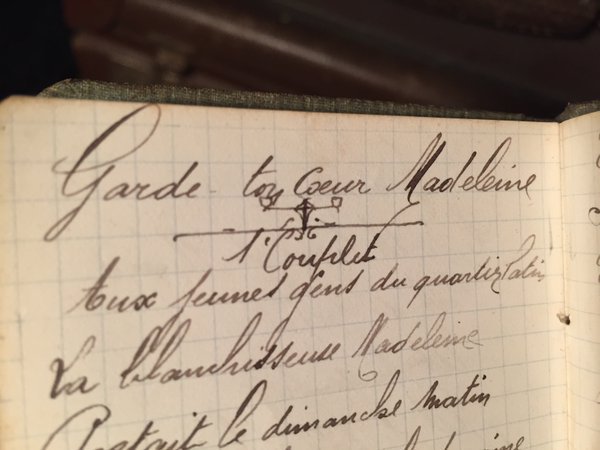 Garde-ton Cœur Madeleine
1er Couplet
Aux jeunes gens du quartier Latin
La blanchisseuse Madeleine
Portait le dimanche matin